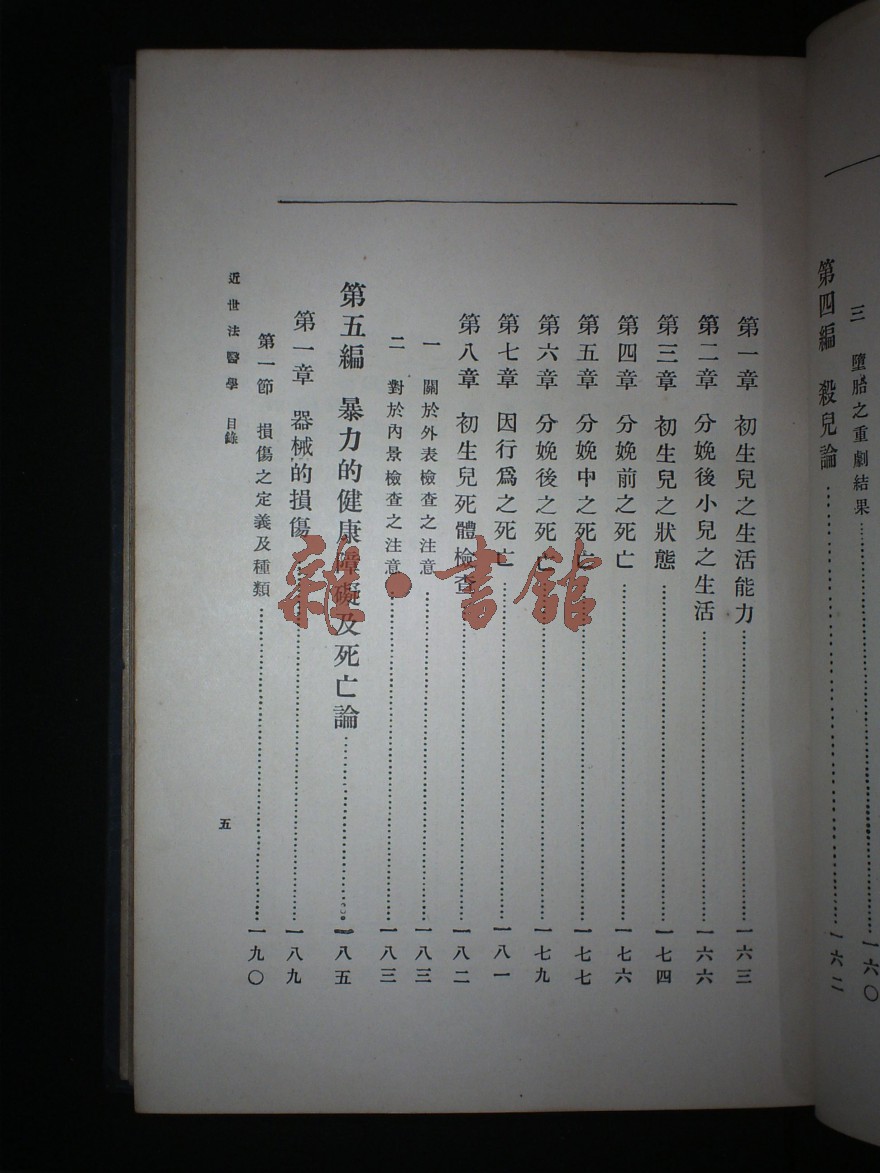 三 墮胎之重劇結果……一六〇
第四編 殺兒論……一六二
第一章 初生兒之生活能力……一六三
第二章 分娩後小兒之生活……一六六
第三章 初生兒之狀態……一七四
第四章 分娩前之死亡……一七六
第五章 分娩中之死亡……一七七
第六章 分娩後之死亡……一七九
第七章 因行爲之死亡……一八一
第八章 初生兒死體檢查……一八二
一 關於外表檢查之注意……一八三
二 對於內景檢查之注意……一八三
第五編 暴力的健康障礙及死亡論……一八五
第一章 器械的損傷……一八九
第一節 損傷之定義及種類……一九〇
近世法醫學 目錄 五
雜·書館